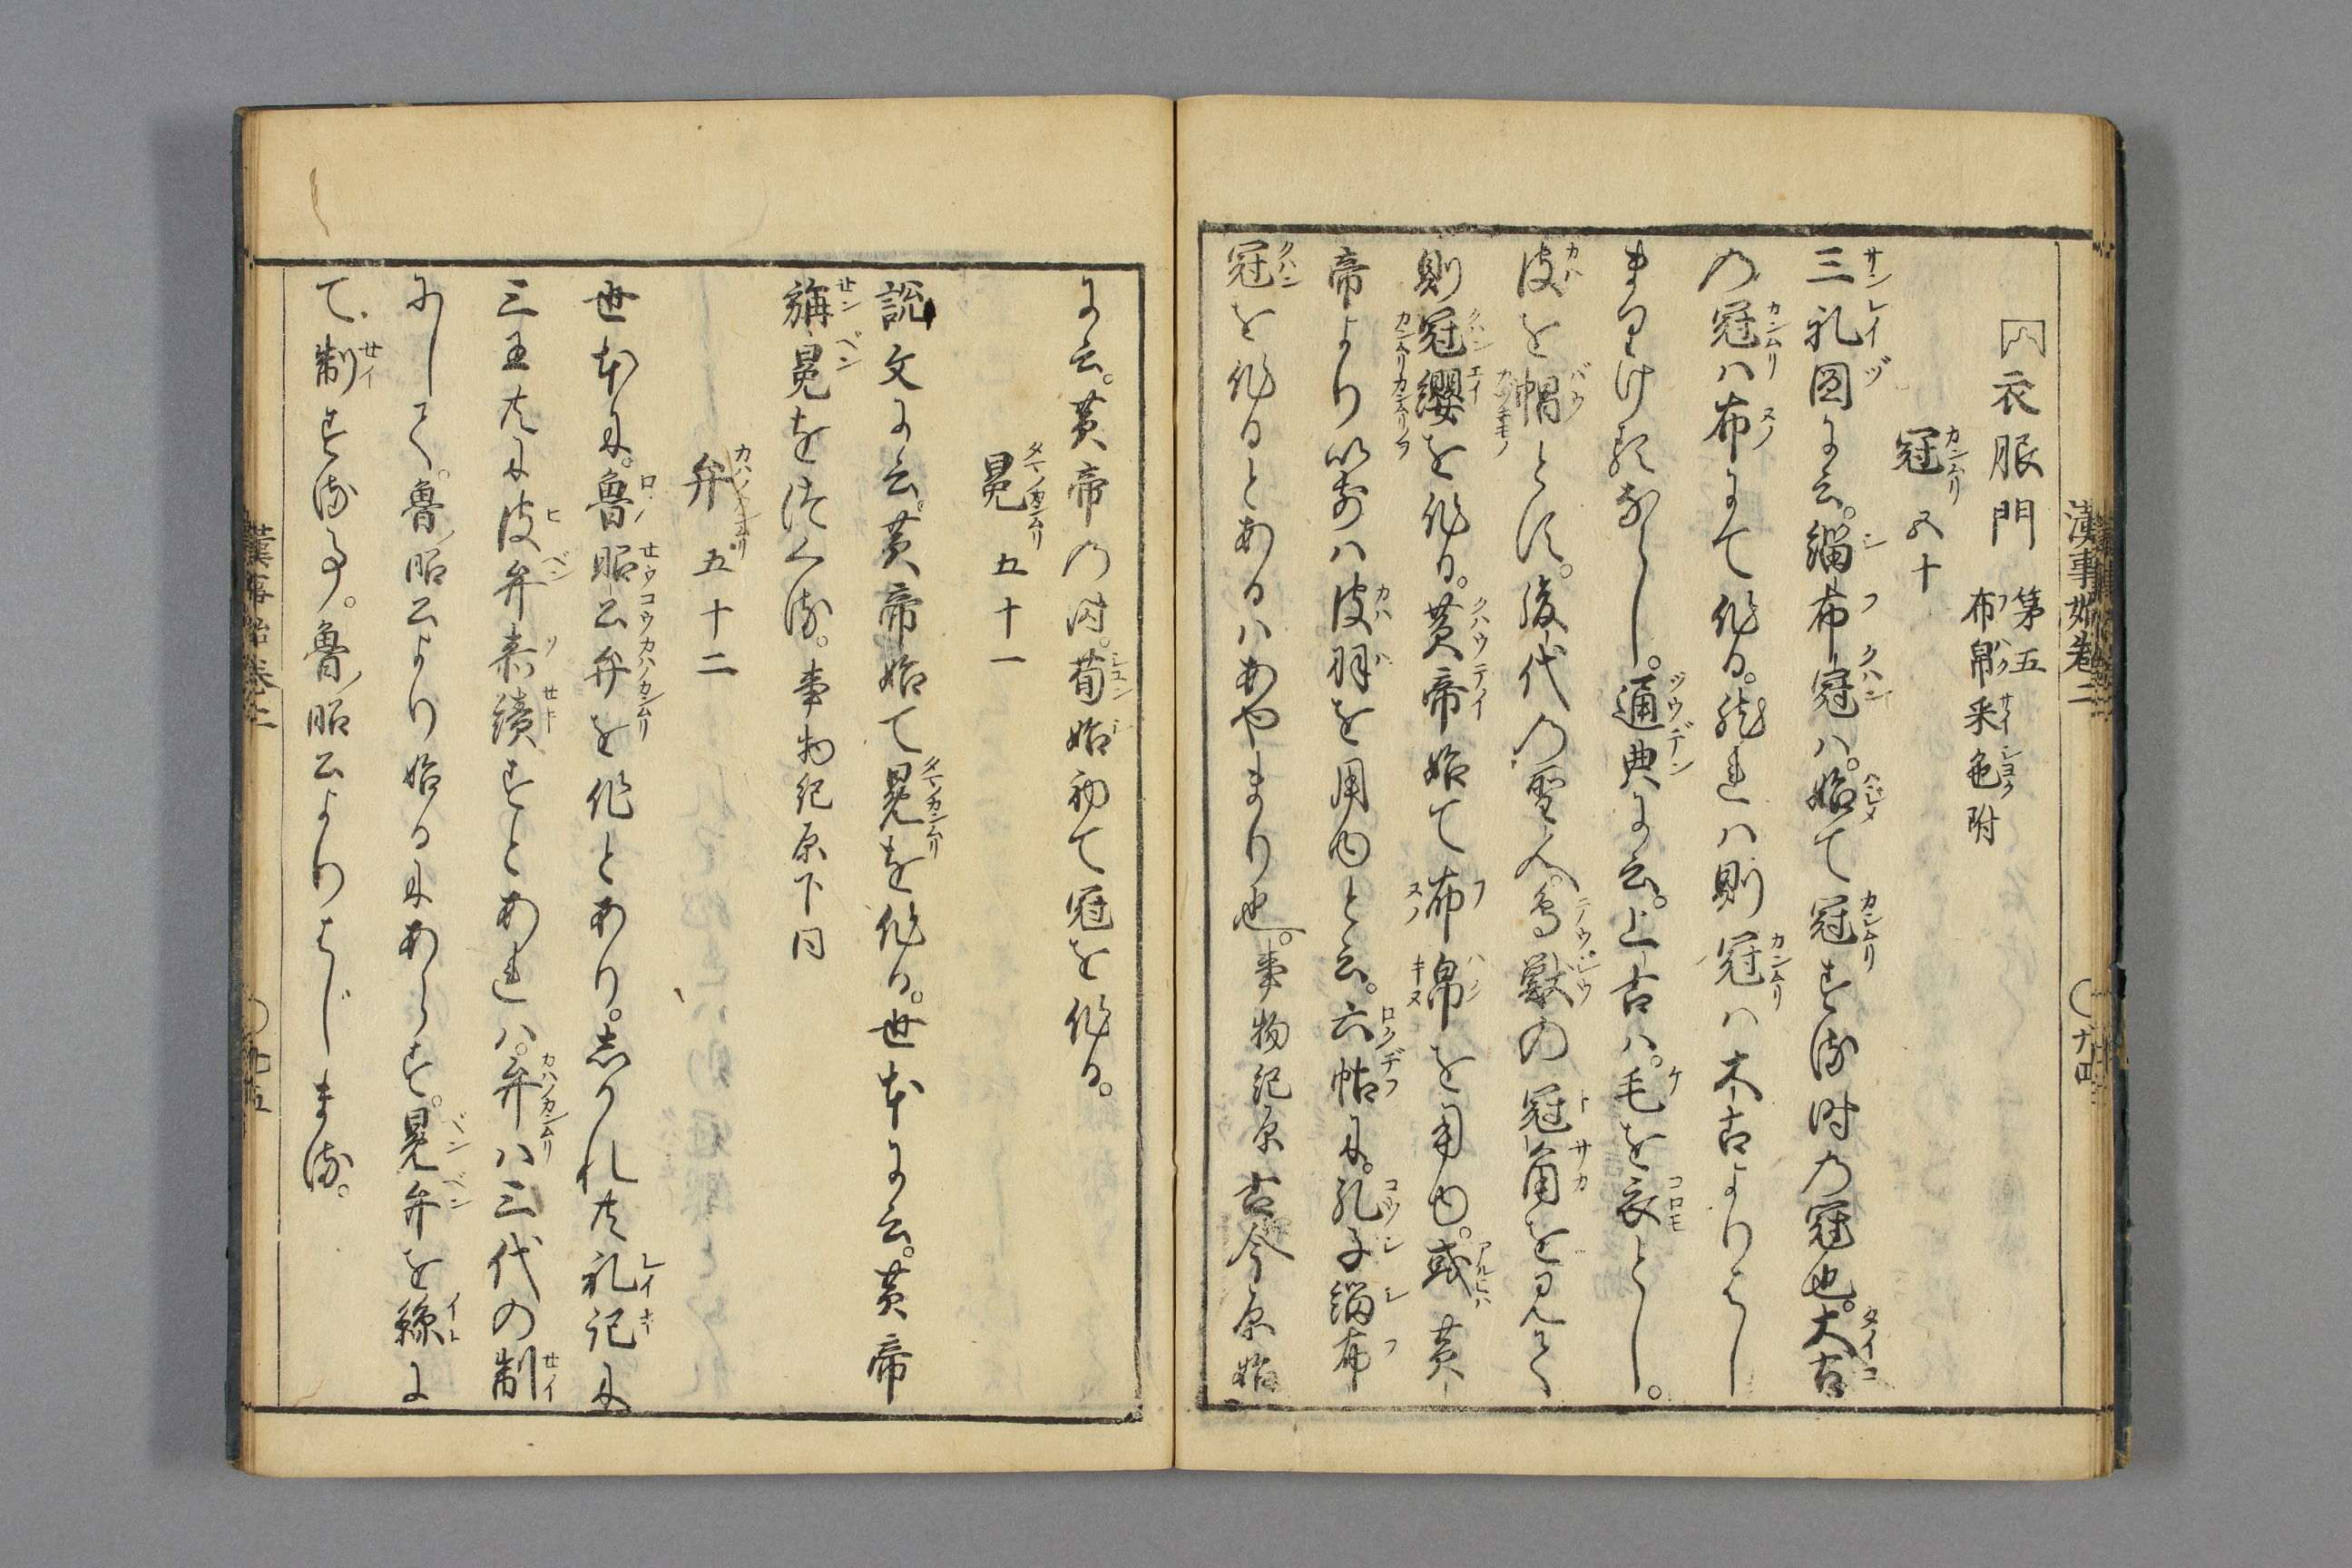 漢事始巻二
〇廿四
衣服門 第五 布帛采色附
冠 五十
三礼図に云。緇布冠ハ。始て冠する時の冠也。太古
の冠ハ布にて作る。然れハ則冠ハ太古よりはし
まりけるならし。通典に云。上古ハ。毛を衣とし。
皮を帽とす。後代の聖人。鳥獣の冠角を見て
則冠纓を作る。黄帝始て布帛を用ゆ。或黄
帝より以前ハ皮羽を用ゆと云。六帖に。孔子緇布
冠を作るとあるハあやまり也。事物紀原 古今原始
に云。黄帝の時。荀始初て冠を作る。
冕 五十一
説文に云。黄帝始て冕を作る。世本に云。黄帝
旃冕をつくる。事物紀原下同
弁 五十二
世本に。魯昭公弁を作とあり。しかれ共礼記に
三王共に皮弁素績すとあれハ。弁ハ三代の制
にして。魯ノ昭公より始るにあらす。冕弁を絲に
て制する事。魯ノ昭公よりはじまる。
漢事始巻二
〇廿五